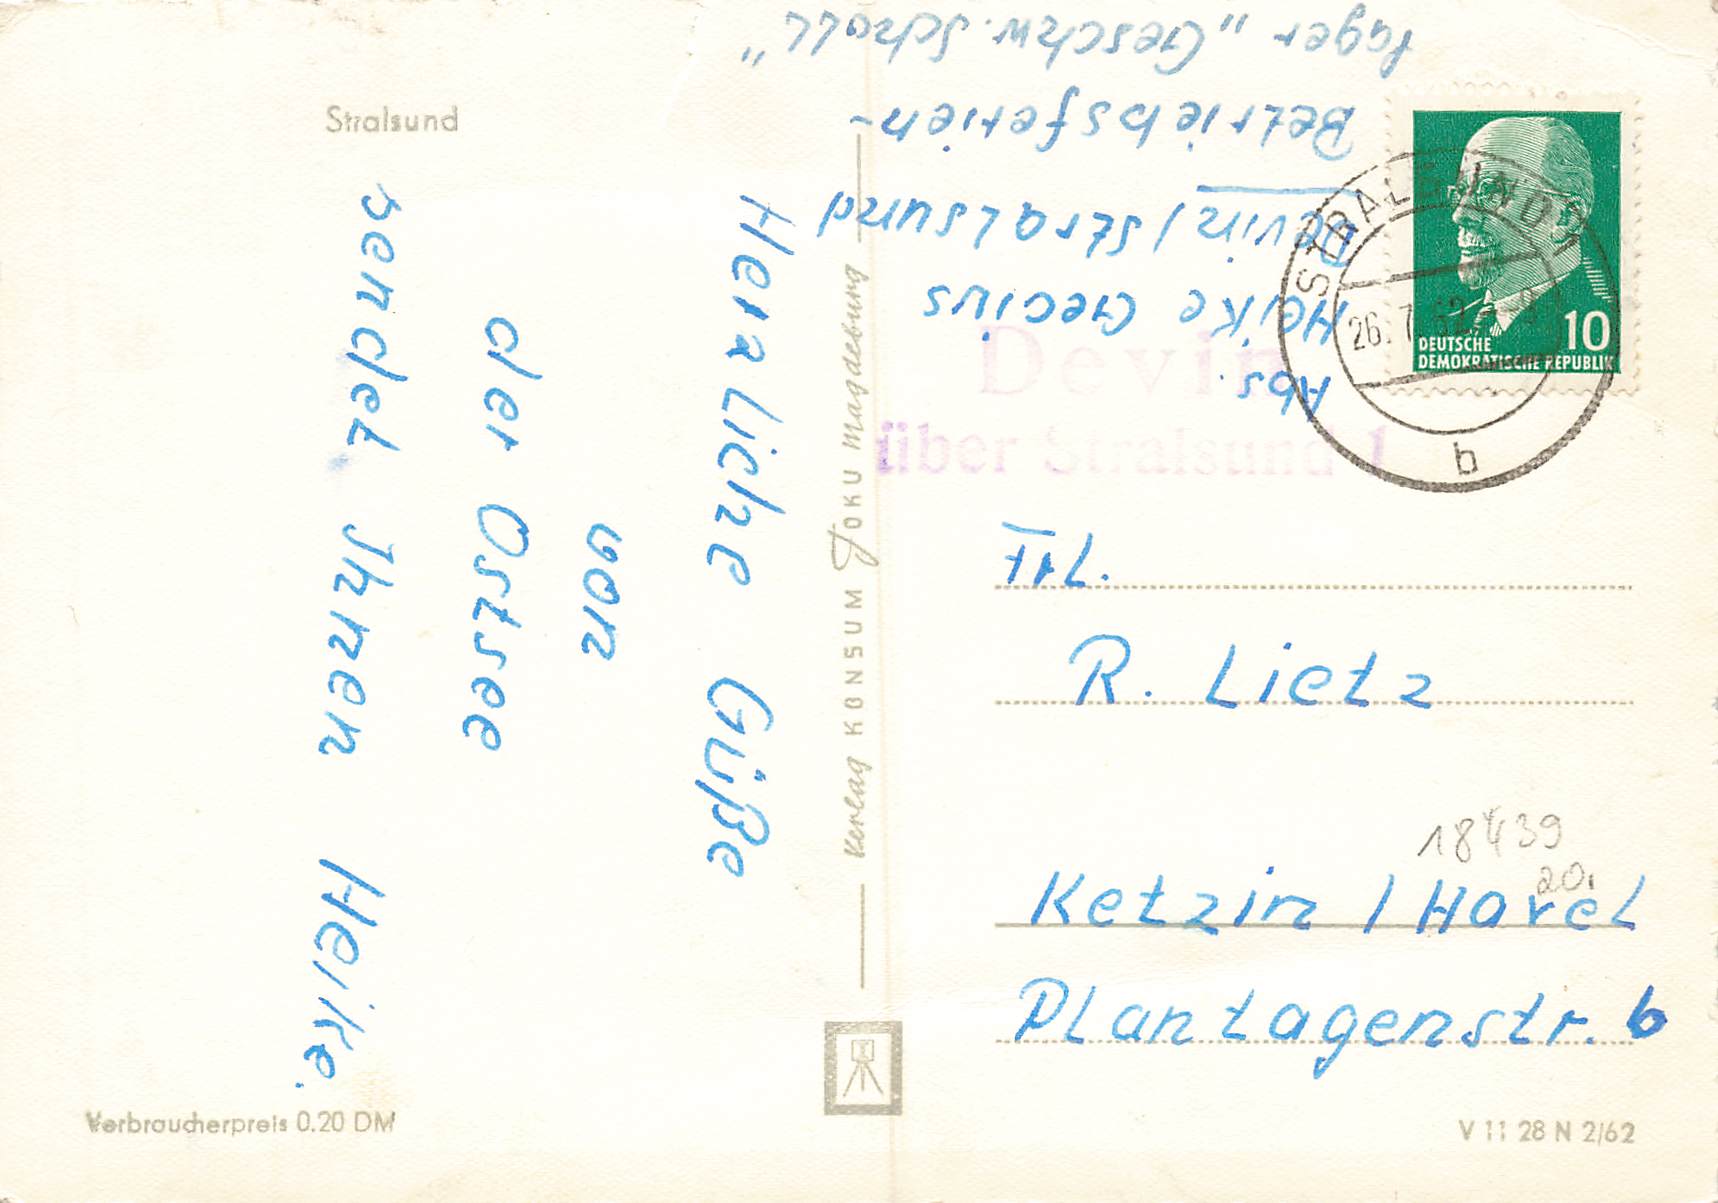 Stralsund
Herzliche Güße
von
der Ostsee
sendet Ihnen Heike.
Verbraucherpreis 0.20 DM
Verlag KONSUM FOKU Magdeburg
Abs.
Heike Gecius
Devin / Stralsund
Betriebsferien-
lager "Geschw. Scholl"
Devin
über Stralsund 1
STRALSUND 1
26.7.62
b
10
DEUTSCHE
DEMOKRATISCHE REPUBLIK
Frl.
R. Lietz
18439
20.
Ketzin / Havel
Plantagenstr. 6
V 11 28 N 2/62